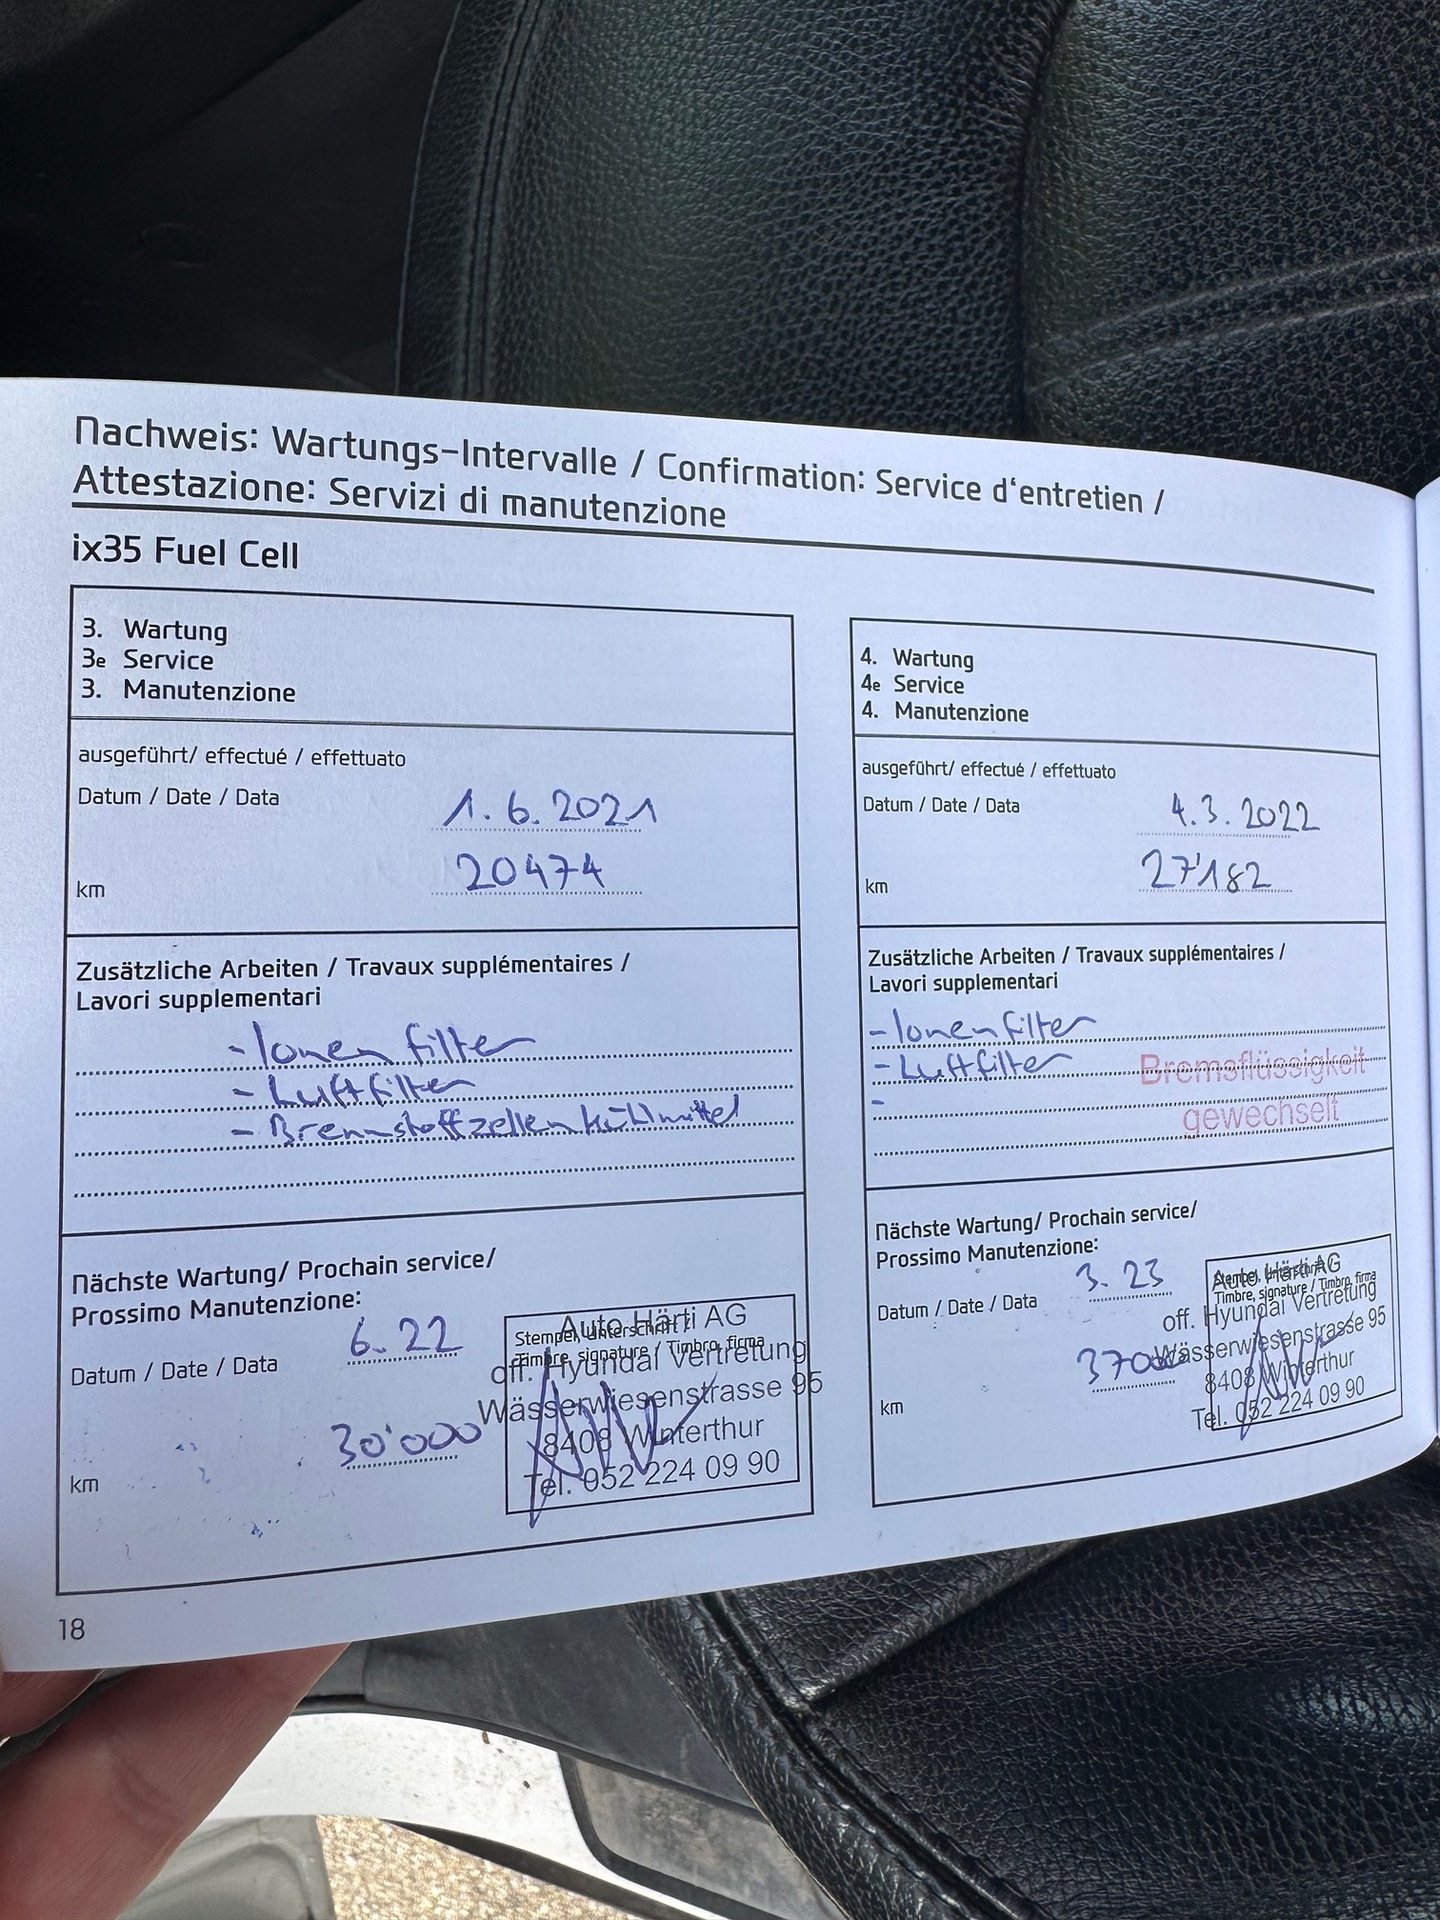 Nachweis: Wartungs-Intervalle / Confirmation: Service d'entretien /
Attestazione: Servizi di manutenzione
ix35 Fuel Cell
3. Wartung
3e Service
3. Manutenzione
ausgeführt/ effectué / effettuato
Datum / Date / Data 1.6.2021
km 20474
Zusätzliche Arbeiten / Travaux supplémentaires /
Lavori supplementari
- Ionenfilter
- Luftfilter
- Brennstoffzellenkühlmittel
Nächste Wartung/ Prochain service/
Prossimo Manutenzione:
Datum / Date / Data 6.22
km 30'000
Stempel, Unterschrift /
Timbre, signature / Timbro, firma
Auto Härti AG
off. Hyundai Vertretung
Wässerwiesenstrasse 95
8408 Winterthur
Tel. 052 224 09 90
4. Wartung
4e Service
4. Manutenzione
ausgeführt/ effectué / effettuato
Datum / Date / Data 4.3.2022
km 27'182
Zusätzliche Arbeiten / Travaux supplémentaires /
Lavori supplementari
- Ionenfilter
- Luftfilter
-
Bremsflüssigkeit
gewechselt
Nächste Wartung/ Prochain service/
Prossimo Manutenzione:
Datum / Date / Data 3.23
km
Stempel, Unterschrift /
Timbre, signature / Timbro, firma
Auto Härti AG
off. Hyundai Vertretung
Wässerwiesenstrasse 95
8408 Winterthur
Tel. 052 224 09 90
18